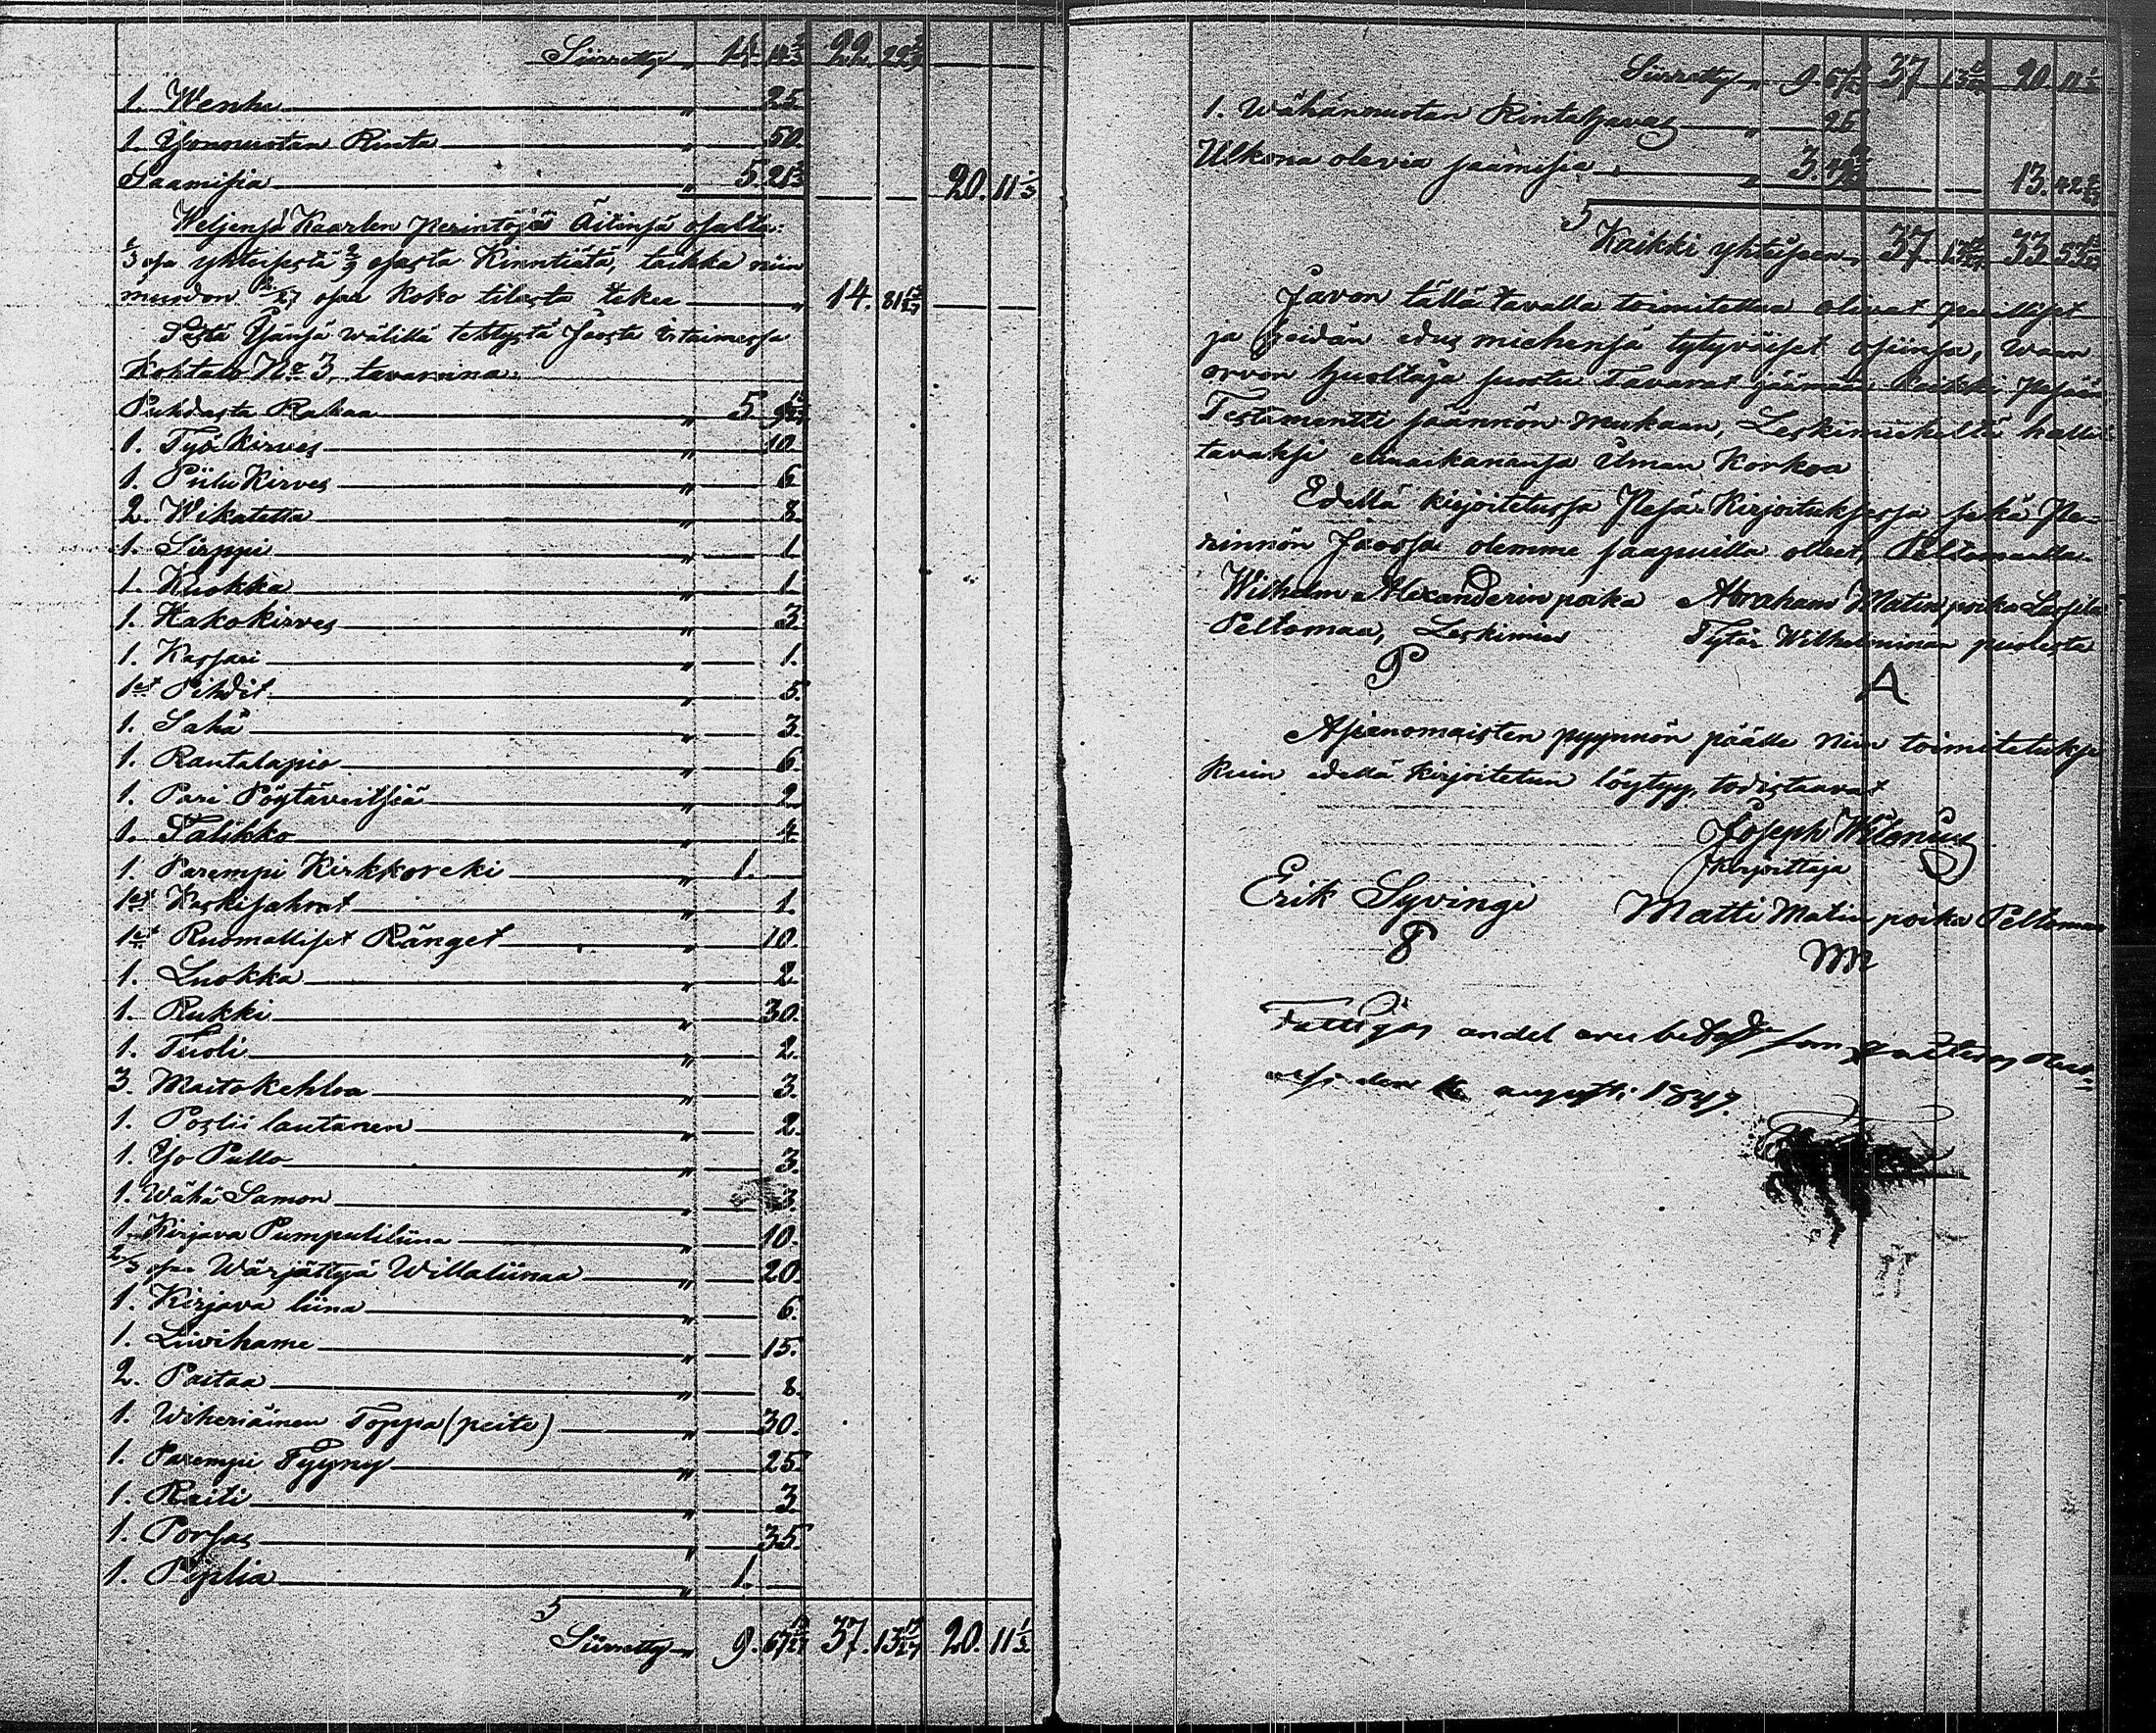 Siirretty „ 14. 14 2/3 22. 22 2/9
1. Wenhe „ 25.
1. Ison muotan Rinta „ 50.
Saamisia „ 5. 21 2/3 20. 11 1/3
Weljensä Kaarlen perintöjä Äitinsä osalta:
1/3 osa yhteisestä 2/9 osasta Kinntiätä, taikka niin
muodon 2/27 osaa koko tilasta tekee „ 14.
Kohtalo No 3, tavaroina:
Puhdasta Rahaa „ 5.
1. Työ Kirves „ 10.
1. Piilu Kirves „ 6.
2. Wikatetta „ 8.
1. Sirppi „ 1.
1. Kuokka „ 1.
1. Hakokirves „ 3.
1. Kassari „ 1.
1et Pihdit „ 5.
1. Saha „ 3.
1. Rautalapio „ 6.
1. Pari Pöytäveitsiä „ 2.
1. Talikko „ 4.
1. Parempi Kirkkoreki „ 1.
1et Kaskisahrat „ 1.
1et Ruomalliset Ränget „ 10.
1. Luokka „ 2.
1. Rukki „ 30.
1. Tuoli „ 2.
3. Maitokehloa „ 3.
1. Poslii lautanen „ 2.
1. Iso Pullo „ 3.
1. Wähä Samon „ 3.
1. Kirjava Pumpuliliina „ 10.
2/3 osaa Wärjättyä Willaliinaa „ 20.
1. Kirjava liina „ 6.
1. Liivihame „ 15.
2. Paitaa „ 8.
1. Wiheriäinen Toppa (peite) „ 30.
1. Parempi Tyyny „ 25.
1. Raiti „ 3.
1. Porsas „ 35.
1. Piplia „ 1.
Siirretty „ 9. 67 37. 13 20. 11 1/3
Siirretty „ 9. 67 37 13 20. 11 1/3
1. Wähänmuotan Rintaljavas „ 25
Ulkona olevia saamisia „ 3. 13. 42
Kaikki yhteisen, 37 33
Javon tällä tavalla toimitettua olivat perilliset
ja heidän edus miehensä tytyväiset osiinsa, waan
orvon huoltaja suostu Tavarat jäämään kaikki pesään
Testamentti säännön mukaan, Leskimieheltä halli-
tavaksi elinaikanansa ilman Korkoa
Edellä kirjoitetussa Pesä Kirjoituksessa sekä Pe-
rinnön Jaossa olemme saapuilla olleet, Peltomaalla
Wilhelm Alexanderin poika Abraham Matin poika Lassila
Peltomaa, Leskimies Tytär Wilhelminan puolesta
P A
Asianomaisten pyynnön pääle niin toimitetuksi
kuin edellä kirjoitetun löytyy, todistaavat
Joseph Wilenius
Kirjoittaja
Erik Syvingi Matti Matin poika Peltomaa
MM
Fattigas andel äro betald som qvitteras
den 16 augusti 1847.